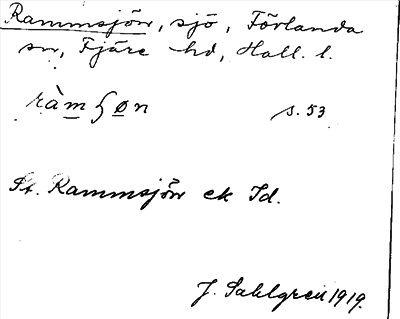 Rammsjön, sjö, Förlanda
sn, Fjäre hd, Hall. l.
ràmʃøn s. 53
St. Rammsjön ek Id.
J. Sahlgren 1919.